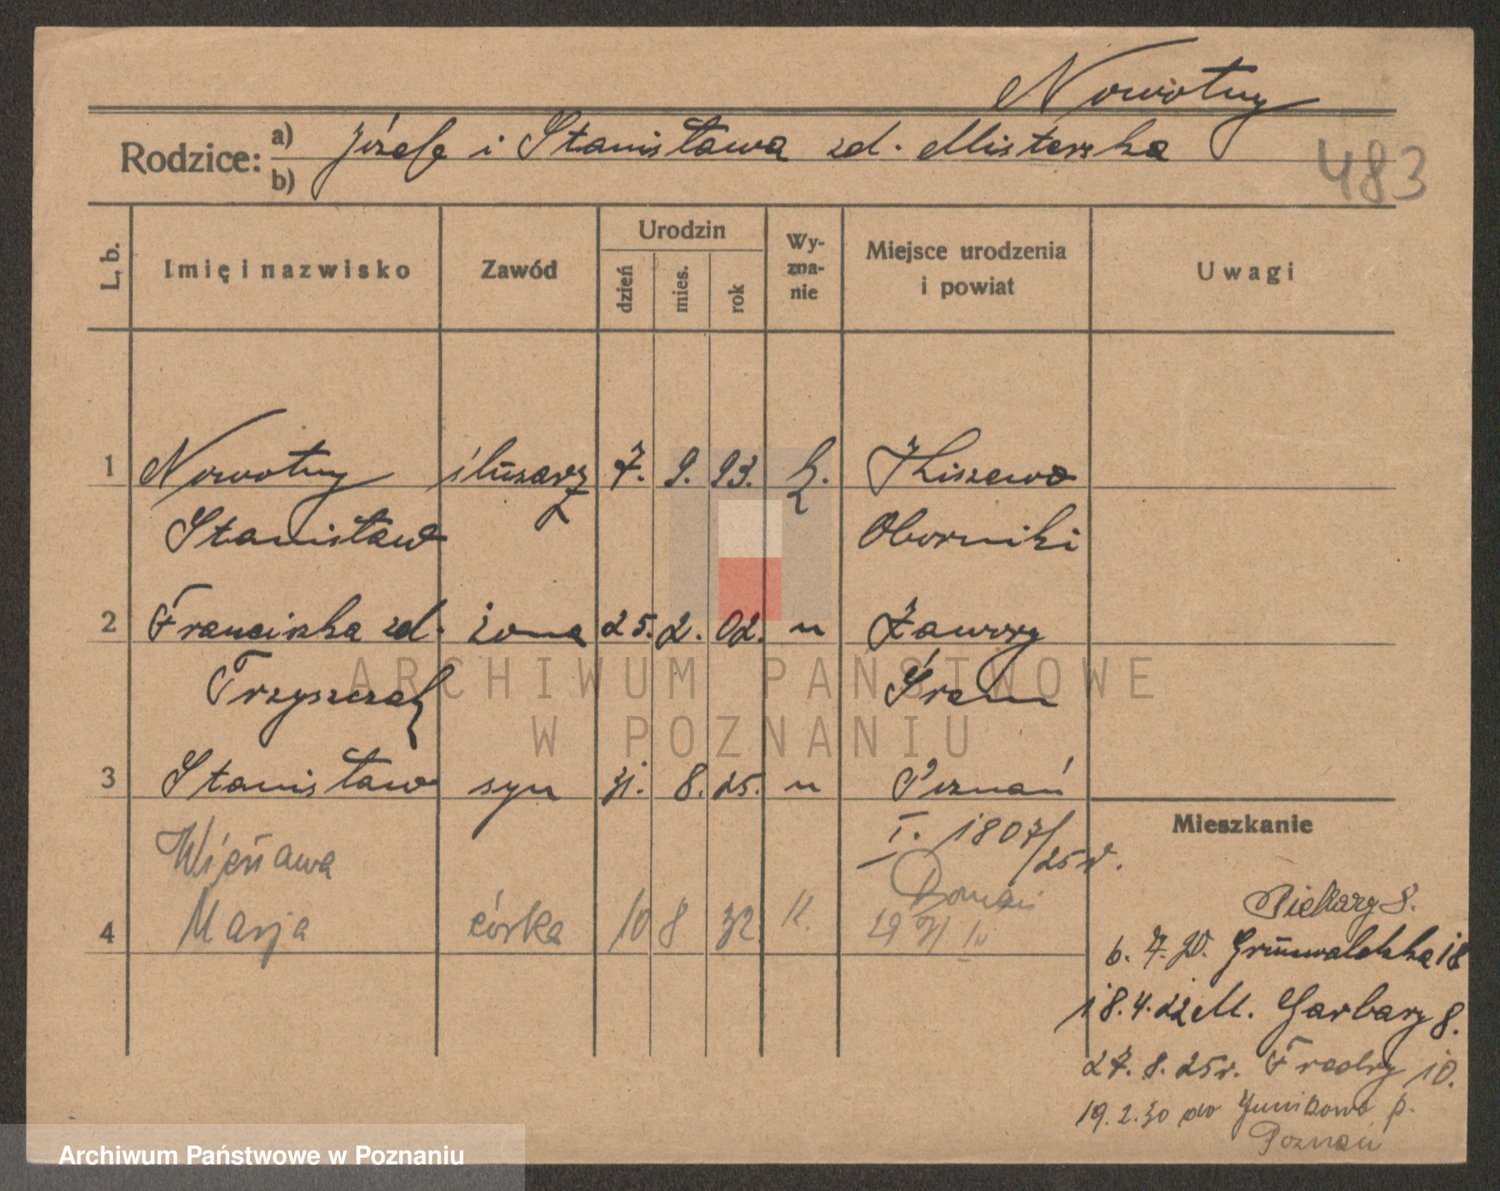 Nowotny
Rodzice: a) Józefa i Stanisława zd. Misterska
b)
483
L. b.
Imię i nazwisko
Zawód
Urodzin
dzień
mies.
rok
Wy-
zna-
nie
Miejsce urodzenia
i powiat
Uwagi
1 Nowotny ślusarz 7. 9. 93. k.
Stanisław Oborniki
2 Franciszka zd. żona 25. 2. 02. " Zawory
Śrem
3 Stanisław syn 31. 8. 25. " Poznań
I. 1807/25r.
Mieszkanie
Wiesława
4 Marja córka 10 8 32 k.
Piekary 8.
6. 7. 20. Grunwaldzka 18
18. 4. 22 M. Garbary 8.
27. 8. 25r. Fredry 10.
19. 2. 30 do Junikowo p.
Poznań
ARCHIWUM PAŃSTWOWE
W POZNANIU
Archiwum Państwowe w Poznaniu